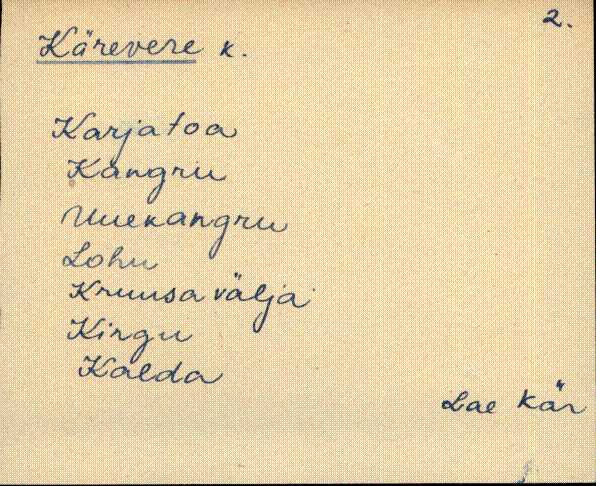 2.
Kärevere k.
Karjatoa
Kangru
Uuekangru
Lohu
Kruusavälja
Kingu
Kalda
Lae kär